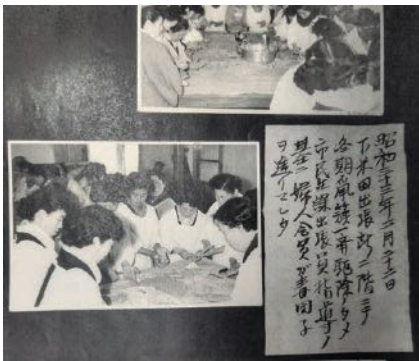 昭和三十三年二月二十二日
下米田出張所二階ニテ
冬期鼠族一斉駆除ノタメ
市民生課出張員指導ノ
基ニ婦人会員ガ毒団子
ヲ造リマシタ